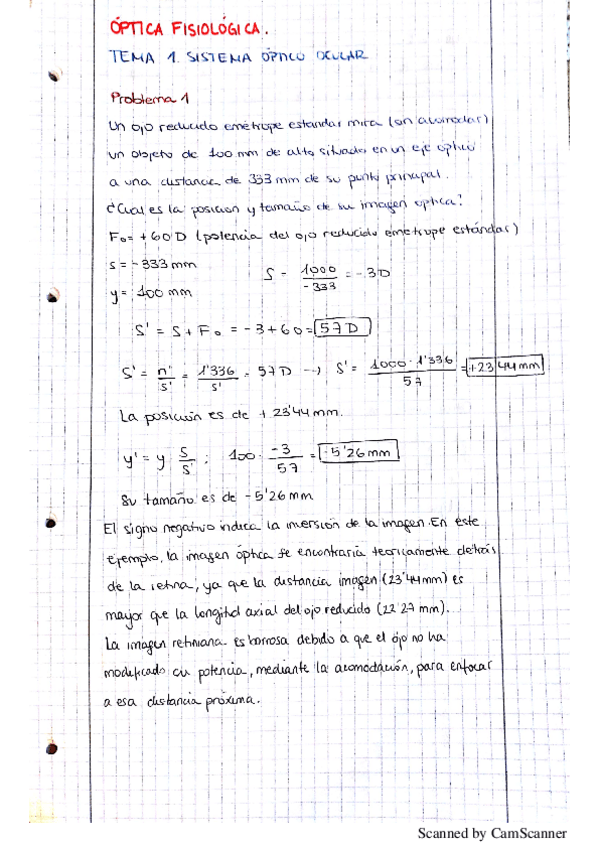 ÓPTICA FISIOLÓGICA.
TEMA 1. SISTEMA ÓPTICO OCULAR
Problema 1
Un ojo reducido emétrope estandar mira (sin acomodar)
un objeto de 100 mm de alto, situado en un eje óptico
a una distancia de 333 mm de su punto principal.
¿Cual es la posición y tamaño de su imagen optica?
Fo = +60 D (potencia del ojo reducido emétrope estándar)
s = -333 mm
S = 1000 / -333 = -3D
y = 100 mm
S' = S + Fo = -3 + 60 = 57 D
S' = n' / s' = 1'336 / s' = 57 D → s' = 1000 · 1'336 / 57 = +23'44 mm
La posición es de + 23'44 mm.
y' = y S / S' ; 100 · -3 / 57 = -5'26 mm
Su tamaño es de -5'26 mm
El signo negativo indica la inversión de la imagen. En este
ejemplo, la imagen óptica se encontraría teoricamente detrás
de la retina, ya que la distancia imagen (23'44 mm) es
mayor que la longitud axial del ojo reducido (22 27 mm).
La imagen retiniana es borrosa debido a que el ojo no ha
modificado su potencia, mediante la acomodación, para enfocar
a esa distancia próxima.
Scanned by CamScanner